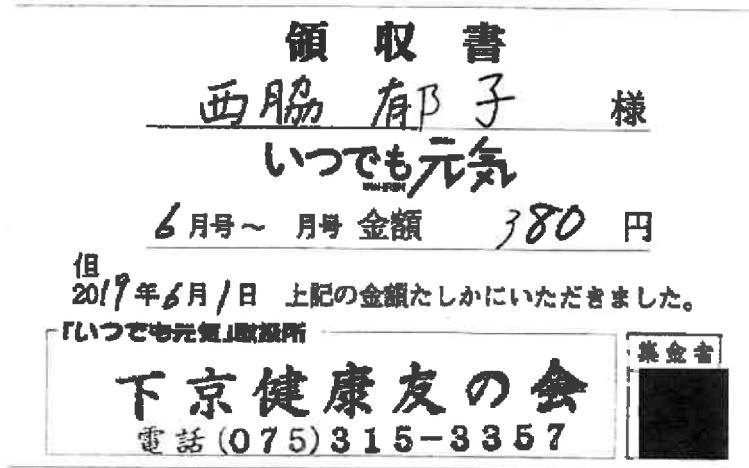 領収書
西脇 郁子 様
いつでも元気
6月号～ 月号 金額 380 円
但
2019年6月1日 上記の金額たしかにいただきました。
「いつでも元気」取扱所
集金者
下京健康友の会
電話(075)315-3357